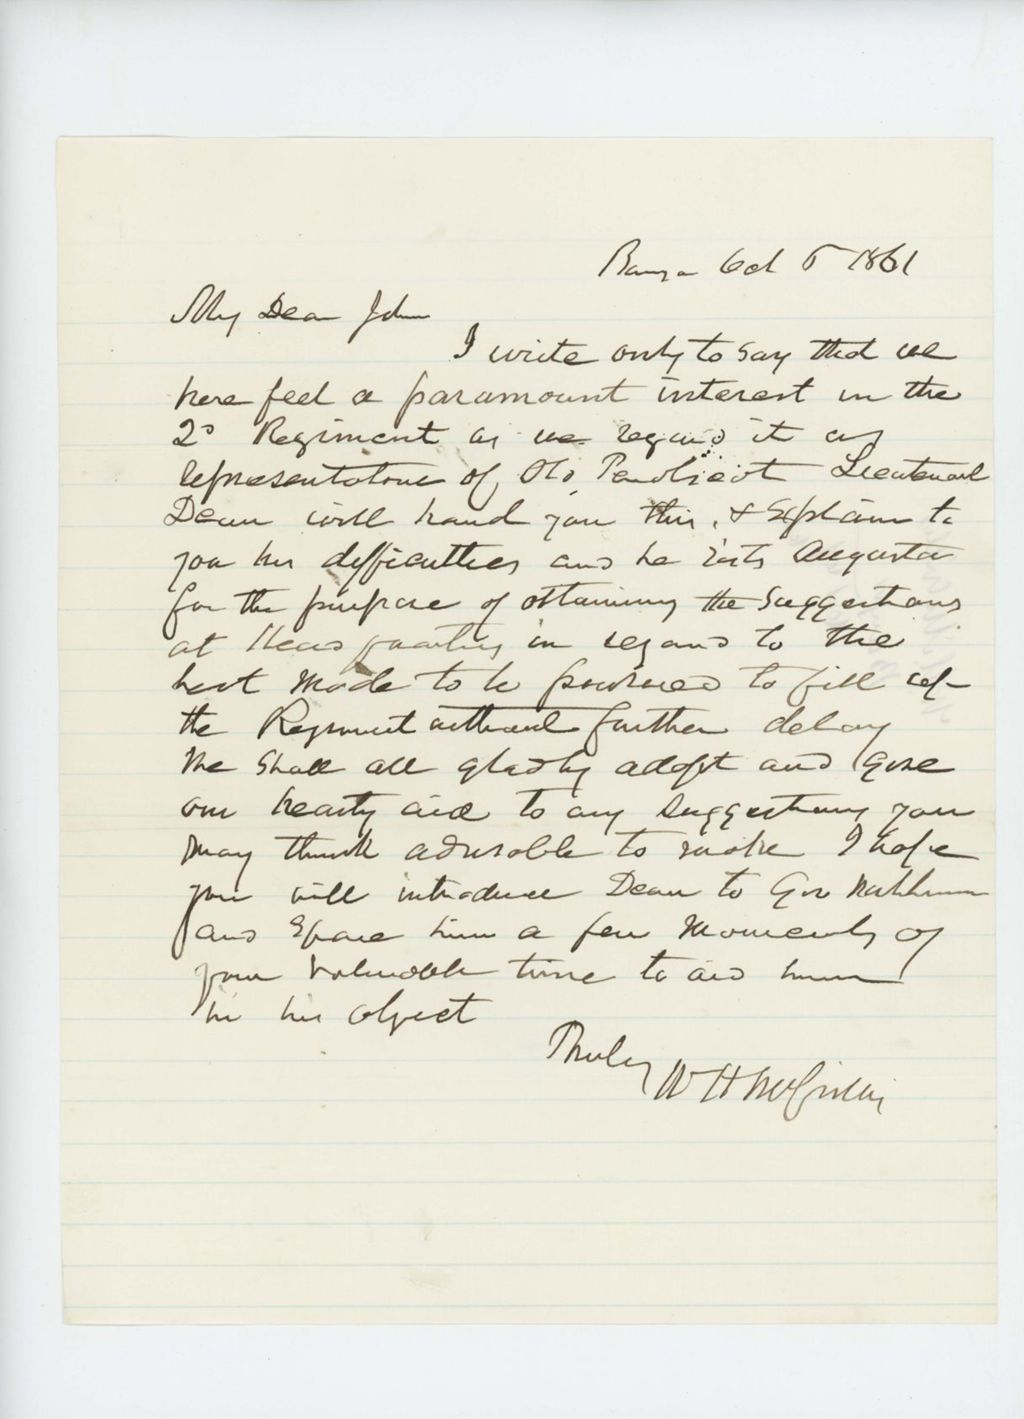 Bangor Oct 5 1861
My Dear John
I write only to say that we
here feel a paramount interest in the
2d Regiment as we regard it as
representative of Old Penobscot Lieutenant
Dean will hand you this, & Explain to
you his difficulties and he visits Augusta
for the purpose of obtaining the Suggestions
at Head quarters in regard to the
best Mode to be pursued to fill up
the Regiment without further delay
We Shall all gladly adopt and give
our hearty aid to any Suggestions you
May think advisable to make I hope
you will introduce Dean to Gov Washburn
and Spare him a few Moments of
your valuable time to aid him
in his object
Truly
W H McCrillis